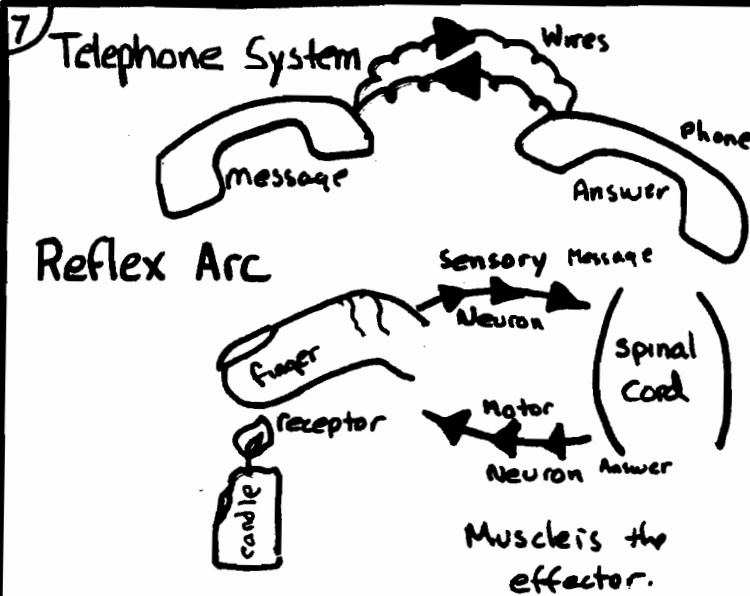 7
Telephone System
Wires
Phone
Message
Answer
Reflex Arc
Sensory Message
Neuron
finger
Spinal
Cord
receptor
Motor
Neuron Answer
candle
Muscle is the
effector.